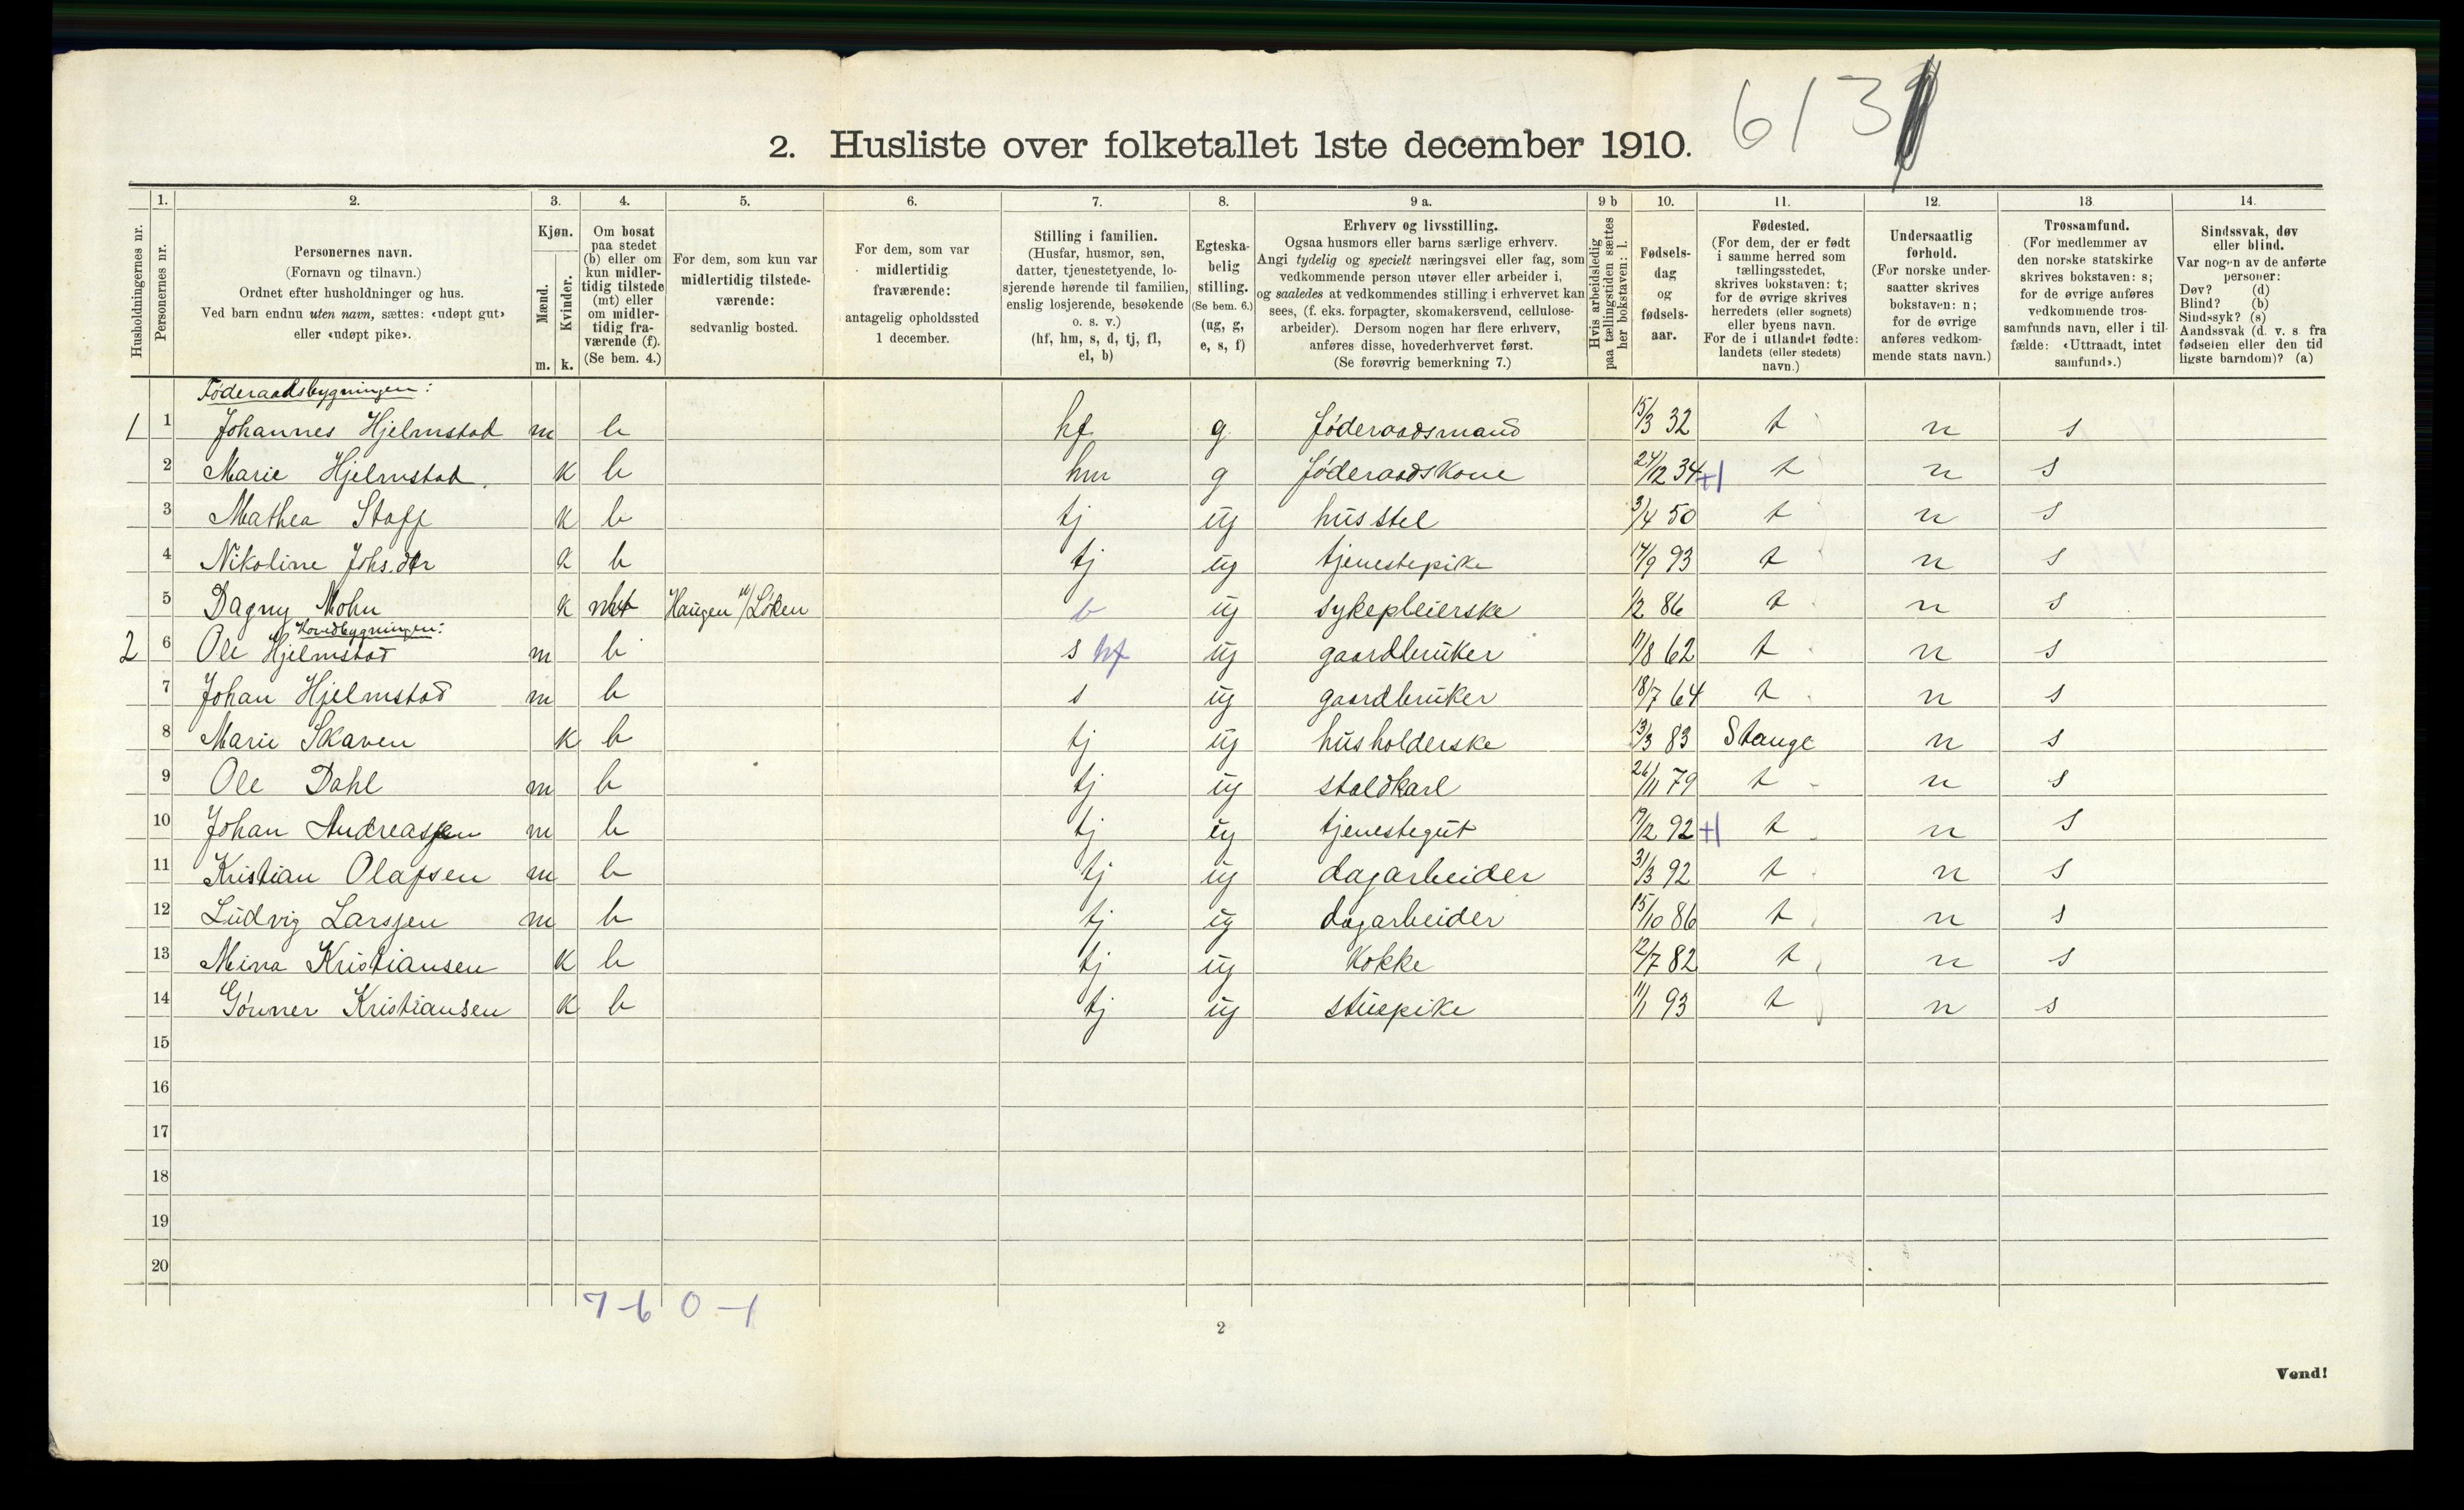 6131
2. Husliste over folketallet 1ste december 1910.
1. 2. 3. 4. 5. 6. 7. 8. 9 a. 9 b 10. 11. 12. 13 14.
Husholdningernes nr.
Personernes nr.
Personernes navn.
(Fornavn og tilnavn.)
Ordnet efter husholdninger og hus.
Ved barn endnu uten navn, sættes: «udøpt gut»
eller «udøpt pike».
Kjøn.
Mænd.
Kvinder.
m. k.
Om bosat
paa stedet
(b) eller om
kun midler-
tidig tilstede
(mt) eller
om midler-
tidig fra-
værende (f).
(Se bem. 4.)
For dem, som kun var
midlertidig tilstede-
værende:
sedvanlig bosted.
For dem, som var
midlertidig
fraværende:
antagelig opholdssted
1 december.
Stilling i familien.
(Husfar, husmor, søn,
datter, tjenestetyende, lo-
sjerende hørende til familien,
enslig losjerende, besøkende
o. s. v.)
(hf, hm, s, d, tj, fl,
el, b)
Egteska-
belig
stilling.
(Se bem. 6.)
(ug, g,
e, s, f)
Erhverv og livsstilling.
Ogsaa husmors eller barns særlige erhverv.
Angi tydelig og specielt næringsvei eller fag, som
vedkommende person utøver eller arbeider i,
og saaledes at vedkommendes stilling i erhvervet kan
sees, (f. eks. forpagter, skomakersvend, cellulose-
arbeider). Dersom nogen har flere erhverv,
anføres disse, hovederhvervet først.
(Se forøvrig bemerkning 7.)
Hvis arbeidsledig
paa tællingstiden sættes
her bokstaven: l.
Fødsels-
dag
og
fødsels-
aar.
Fødested.
(For dem, der er født
i samme herred som
tællingsstedet,
skrives bokstaven: t;
for de øvrige skrives
herredets (eller sognets)
eller byens navn.
For de i utlandet fødte:
landets (eller stedets)
navn.)
Undersaatlig
forhold.
(For norske under-
saatter skrives
bokstaven: n;
for de øvrige
anføres vedkom-
mende stats navn.)
Trossamfund.
(For medlemmer av
den norske statskirke
skrives bokstaven: s;
for de øvrige anføres
vedkommende tros-
samfunds navn, eller i til-
fælde: «Uttraadt, intet
samfund».)
Sindssvak, døv
eller blind.
Var nogen av de anførte
personer:
Døv? (d)
Blind? (b)
Sindssyk? (s)
Aandssvak (d. v. s. fra
fødselen eller den tid
ligste barndom)? (a)
Føderaadsbygningen:
1 1 Johannes Hjelmstad m b hf g føderaadsmand 15/3 32 t n s
2 Marie Hjelmstad k b hm g føderaadskone 24/12 34 +1 t n s
3 Mathea Staff k b tj ug husstel 3/4 50 t n s
4 Nikoline Johs.dtr k b tj ug tjenestepike 14/9 93 t n s
5 Dagny Mohn k mt Haugen u/Løken b ug sykepleierske 1/2 86 t n s
Hovedbygningen:
2 6 Ole Hjelmstad m b s hf ug gaardbruker 11/8 62 t n s
7 Johan Hjelmstad m b s ug gaardbruker 18/7 64 t n s
8 Marie Skaven k b tj ug husholderske 13/3 83 Stange n s
9 Ole Dahl m b tj ug staldkarl 26/11 79 t n s
10 Johan Andreassen m b tj ug tjenestegut 19/12 92 +1 t n s
11 Kristian Olafsen m b tj ug dagarbeider 31/3 92 t n s
12 Ludvig Larssen m b tj ug dagarbeider 15/10 86 t n s
13 Mina Kristiansen k b tj ug Kokke 12/7 82 t n s
14 Gunner Kristiansen k b tj ug stuepike 11/1 93 t n s
15
16
17
18
19
20
7-6 0-1
2
Vend!